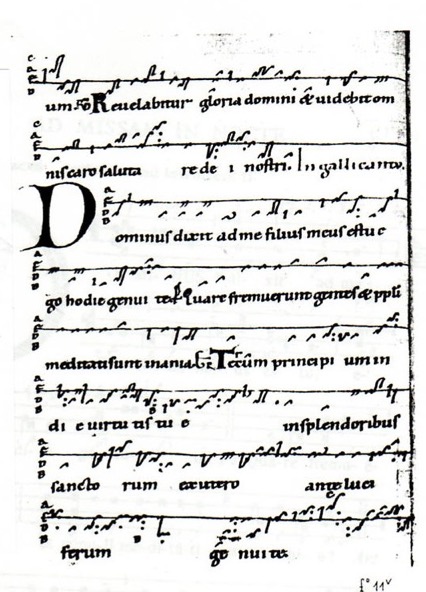 um. Co Reuelabitur gloria domini & uidebit om
nis caro saluta re de i nostri. In galli cantu.
Dominus dixit ad me filius meus es tu e
go hodie genui te. Ps Quare fremuerunt gentes & ppli
meditati sunt inania. GR Tecum principi um in
di e uirtu tis tu e in splendoribus
sancto rum ex utero ante luci
ferum ge nui te.
fº 11v